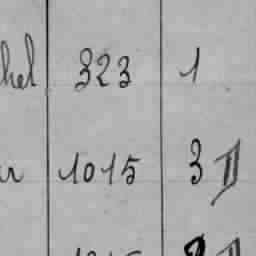 hel 323 1
r 1015 3 II